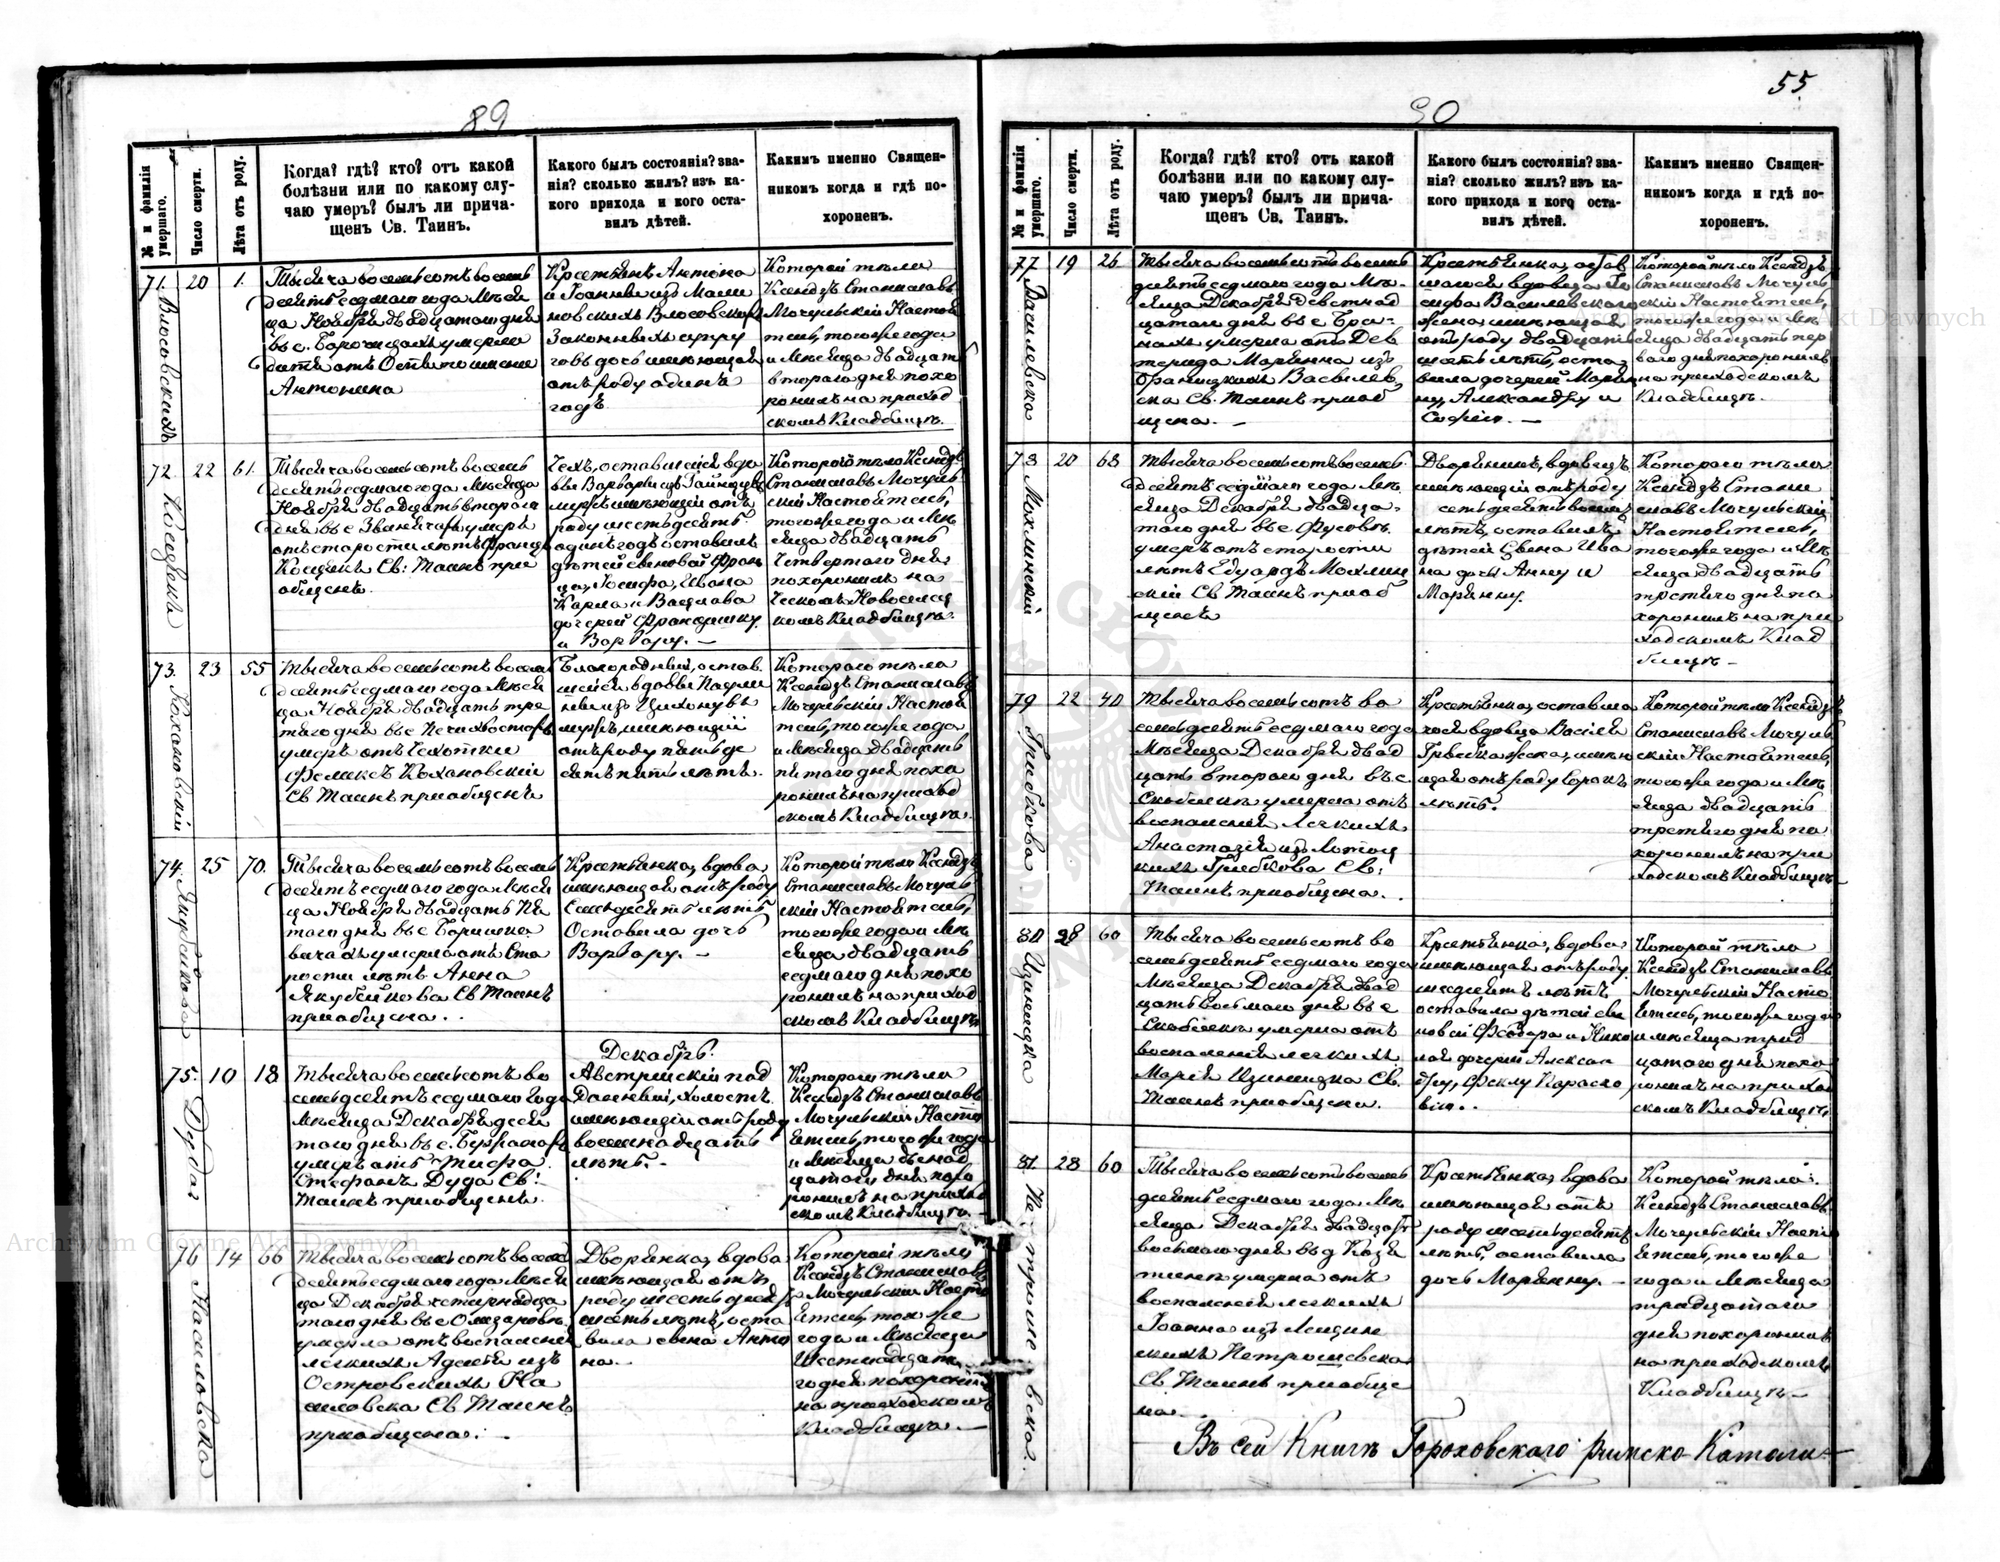 89
№ и фамилія умершаго.
Число смерти.
Лѣта отъ роду.
Когда? гдѣ? кто? отъ какой
болѣзни или по какому слу-
чаю умеръ? былъ ли прича-
щенъ Св. Таинъ.
Какого былъ состоянія? зва-
нія? сколько жилъ? изъ ка-
кого прихода и кого оста-
вилъ дѣтей.
Какимъ именно Священ-
никомъ когда и гдѣ по-
хороненъ.
71. Влосовскихъ
20
1.
Тысяча восемьсотъ восемь
десятъ седмаго года Мѣся
ца Ноября двадцатаго дня
въ с. умерла
дитя отъ Оспы по имени
Антонина
Крестьянъ Антона
и Іоанны изъ
Влосовскихъ
Законныхъ супру
говъ дочь имеющая
отъ роду одинъ
годъ
Которой тѣло
Ксендзъ Станиславъ
Мочульскій Настоя
тель, тогоже года
и Мѣсяца двадцать
втораго дня похо
ронилъ на приход
скомъ Кладбищѣ.
72.
22
61.
Тысяча восемьсотъ восемь
десятъ седмаго года Мѣсяца
Ноября двадцать втораго
дня въ с умеръ
отъ старости лѣтъ Францъ
Св: Таинъ прі
общенъ.
Чехъ, оставшейся вдо
вы Варвары изъ
мужъ имеющій отъ
роду шестьдесятъ
одинъ годъ оставилъ
дѣтей сыновей Фран
ца, Іосифа, Ивана
Карла и Вацлава
дочерей Франтишку
и Варвару. —
Котораго тѣло Ксендзъ
Станиславъ Мочуль
скій Настоятель,
тогоже года и Мѣ
сяца двадцать
Четвертаго дня
похоронилъ на
Ческомъ
комъ Кладбищѣ.
73. Кохановскій
23
55
Тысяча восемьсотъ восемь
десятъ седмаго года Мѣся
ца Ноября двадцать тре
тяго дня въ с Печихвостахъ
умеръ отъ Чахотки
Феликсъ Кохановскій
Св Таинъ пріобщенъ
Благородный, остав
шейся вдовы
изъ
мужъ, имеющій
отъ роду пятьде
сятъ пять лѣтъ.
Котораго тѣло
Ксендзъ Станиславъ
Мочульскій Настоя
тель, тогоже года
и Мѣсяца двадцать
пятаго дня похо
ронилъ на приход
скомъ Кладбищѣ.
74.
25
70.
Тысяча восемьсотъ восемь
десятъ седмаго года Мѣся
ца Ноября двадцать пя
таго дня въ с
умерла отъ Ста
рости лѣтъ Анна
Св Таинъ
пріобщена.
Крестьянка, вдова
имеющая отъ роду
Семьдесятъ лѣтъ
Оставила дочь
Варвару. —
Которой тѣло Ксендзъ
Станиславъ Мочуль
скій Настоятель,
тогоже года и Мѣ
сяца двадцать
седмаго дня похо
ронилъ на приход
скомъ Кладбищѣ
Декабрь.
75. Дуда
10
18
Тысяча восемьсотъ во
семьдесятъ седмаго года
Мѣсяца Декабря деся
таго дня въ с.
умеръ отъ Тифа
Стефанъ Дуда Св:
Таинъ пріобщенъ.
Австрійскій под
данный, холостъ
имеющій отъ роду
восемнадцать
лѣтъ. —
Котораго тѣло
Ксендзъ Станиславъ
Мочульскій Насто
ятель, тогоже года
и Мѣсяца двенад
цатаго дня похо
ронилъ на приход
скомъ Кладбищѣ. —
76
14
66
Тысяча восемьсотъ восемь
десятъ седмаго года Мѣся
ца Декабря четырнадца
таго дня въ с
умерла отъ воспаленія
легкихъ изъ
Островскихъ
Св Таинъ
пріобщена.
Дворянка, вдова
имеющая отъ
роду шестьдесятъ
шесть лѣтъ, оста
вила сына Анто
на.
Которой тѣло
Ксендзъ Станиславъ
Мочульскій Насто
ятель, тогоже
года и Мѣсяца
Шестнадцата
го дня похоронилъ
на приходскомъ
Кладбищѣ. —
90
55
№ и фамилія умершаго.
Число смерти.
Лѣта отъ роду.
Когда? гдѣ? кто? отъ какой
болѣзни или по какому слу-
чаю умеръ? былъ ли прича-
щенъ Св. Таинъ.
Какого былъ состоянія? зва-
нія? сколько жилъ? изъ ка-
кого прихода и кого оста-
вилъ дѣтей.
Какимъ именно Священ-
никомъ когда и гдѣ по-
хороненъ.
77. Василевска
19
26
Тысяча восемьсотъ восемь
десятъ седмаго года Мѣ-
сяца Декабря девятнад
цатаго дня въ с
умерла отъ
Маріанна изъ
Василев
ска Св. Таинъ пріоб
щена. —
Крестьянка, остав
шагося вдовца Іо
сифа Василевскаго
жена, имеющая
отъ роду двадцать
шесть лѣтъ, оста
вила дочерей Маріан
ну, Александру и
Софію. —
Которой тѣло Ксендзъ
Станиславъ Мочуль
скій Настоятель,
тогоже года и Мѣ
сяца двадцать пер
ваго дня похоронилъ
на приходскомъ
Кладбищѣ.
78 Мохлинскій
20
68
Тысяча восемьсотъ восемь
десятъ седмаго года Мѣ
сяца Декабря двадца-
таго дня въ с
умеръ отъ старости
лѣтъ Едуардъ Мохлин
скій Св Таинъ пріоб
щенъ
Дворянинъ, вдовецъ
имеющій отъ роду
лѣтъ, оставилъ
дѣтей Сына Ива
на дочь Анну и
Маріанну.
Котораго тѣло
Ксендзъ Стани
славъ Мочульскій
Настоятель,
тогоже года и Мѣ
сяца двадцать
третяго дня по
хоронилъ на при
ходскомъ Клад
бищѣ —
79 Грибкова
22
40
Тысяча восемьсотъ во
семьдесятъ седмаго года
Мѣсяца Декабря двад
цать втораго дня въ с.
умерла отъ
воспаленія Легкихъ
Анастазія изъ
Грибкова Св:
Таинъ пріобщена.
Крестьянка,
вдовца Василія
жена, имею
щая отъ роду Сорокъ
лѣтъ.
Которой тѣло Ксендзъ
Станиславъ Мочуль
скій Настоятель,
тогоже года и Мѣ
сяца двадцать
третяго дня по
хоронилъ на при
ходскомъ Кладбищѣ
80
28
60
Тысяча восемьсотъ во
семьдесятъ седмаго года
Мѣсяца Декабря двад
цать восьмаго дня въ с
умерла отъ
воспаленія легкихъ
Марія Св.
Таинъ пріобщена.
Крестьянка, вдова
имеющая отъ роду
лѣтъ
оставила дѣтей сы
новей Феодора и Нико
лая дочерей Алексан
дру, Феклу
Которой тѣло
Ксендзъ Станиславъ
Мочульскій Насто
ятель, тогоже года
и мѣсяца трид
цатаго дня похо
ронилъ на приход
скомъ Кладбищѣ,
81.
28
60
Тысяча восемьсотъ восемь
десятъ седмаго года Мѣ
сяца Декабря двадцать
восьмаго дня въ д
умерла отъ
воспаленія легкихъ
Іоанна изъ
Св. Таинъ пріобще
на.
Крестьянка, вдова
имеющая отъ
роду шестьдесятъ
лѣтъ, оставила
дочь Маріанну. —
Которой тѣло
Ксендзъ Станиславъ
Мочульскій Насто
ятель, тогоже
года и Мѣсяца
тридцатаго
дня похоронилъ
на приходскомъ
Кладбищѣ —
Въ сей Книгѣ Гороховскаго Римско Католи-
Archiwum Główne Akt Dawnych